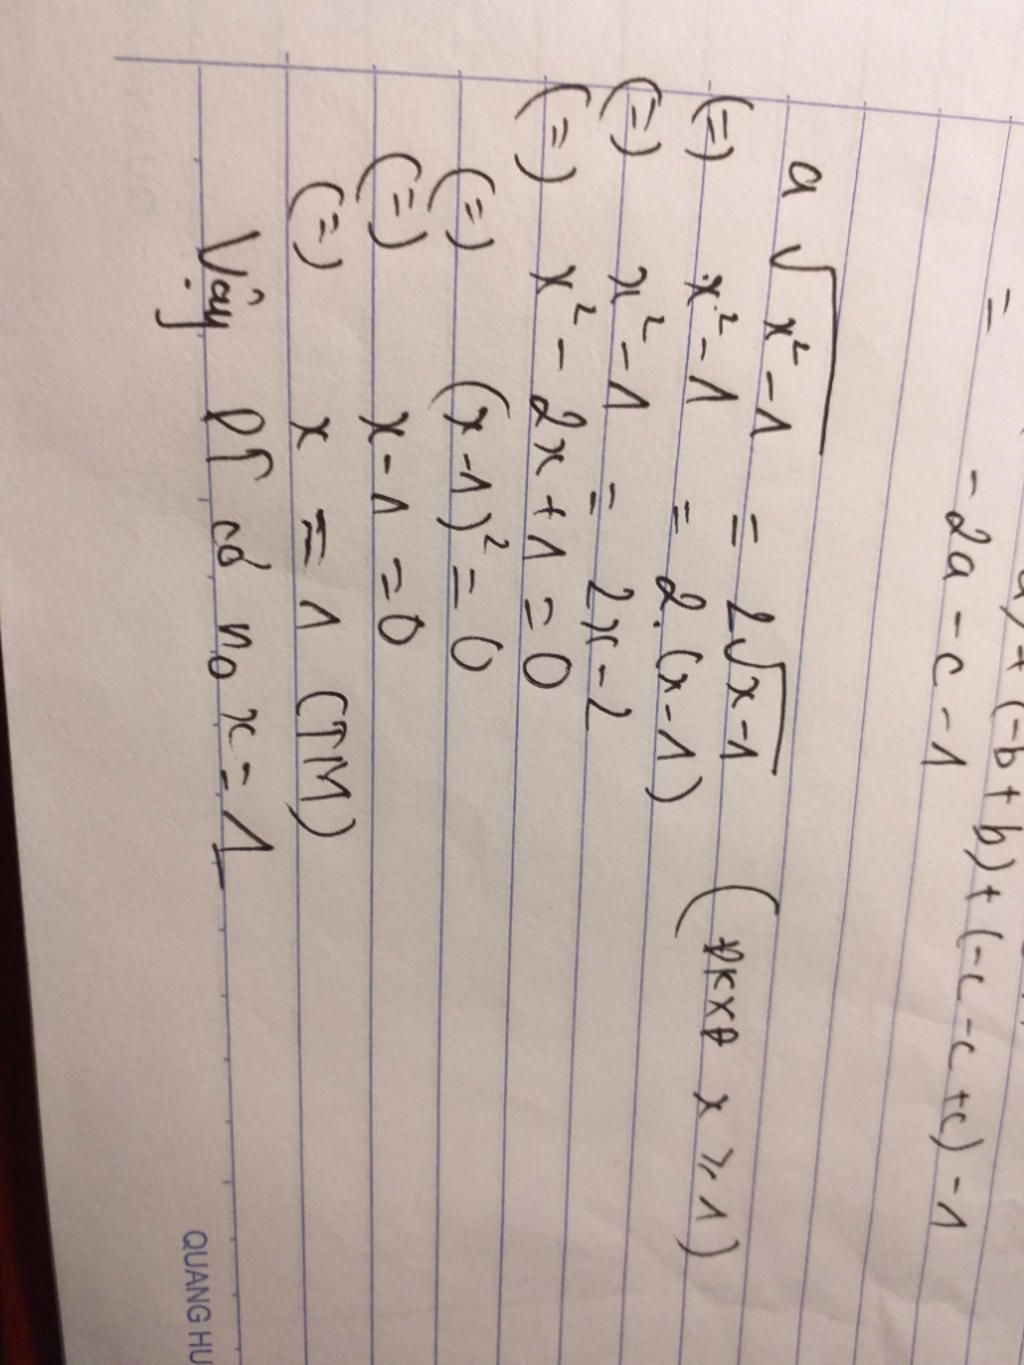 ) + (-b + b) + (-c - c + c) - 1
= - 2a - c - 1
a √x² - 1 = 2√x - 1 (ĐKXĐ x ≥ 1)
(=) x² - 1 = 2. (x - 1)
(=) x² - 1 = 2x - 2
(=) x² - 2x + 1 = 0
(=) (x - 1)² = 0
(=) x - 1 = 0
(=) x = 1 (TM)
Vậy PT có no x = 1
QUANG HU